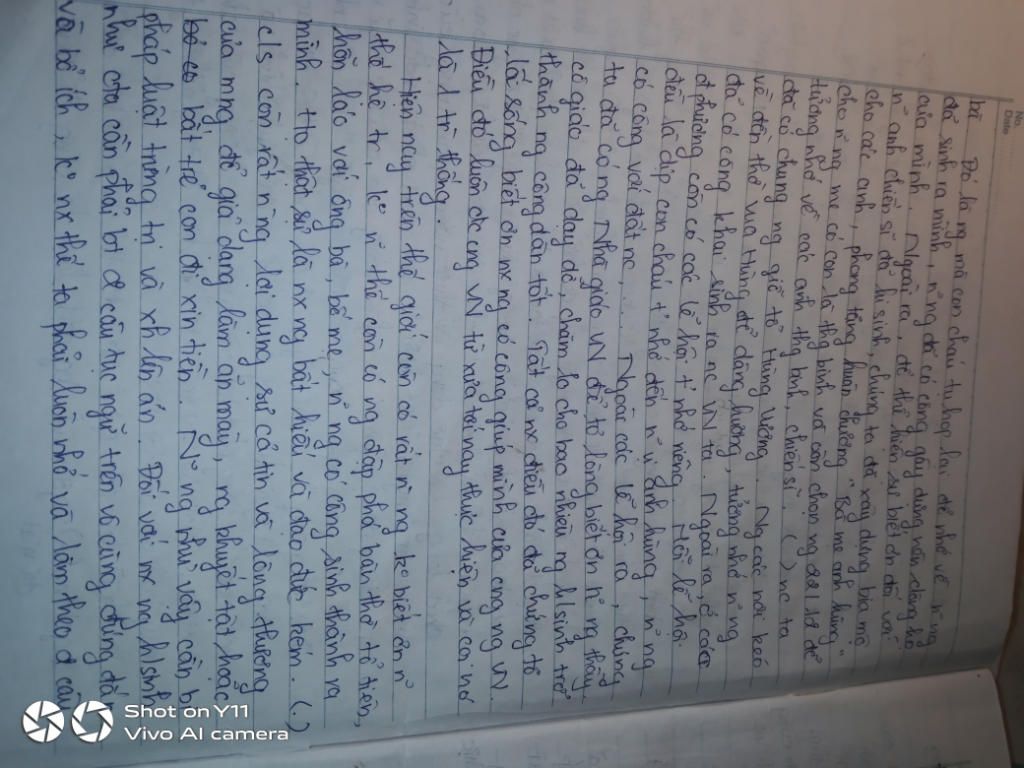 No.
Date
bà. Đó là ng mà con cháu tụ họp lại để nhớ về n~ ng
đã sinh ra mình, n~ ng đã có công gây dựng nên dòng họ
của mình. Ngoài ra, để thể hiện sự biết ơn đối với
n~ anh chiến sĩ đã hi sinh, chúng ta đã xây dựng bia mộ
cho các anh, phong tặng huân chương "Bà mẹ anh hùng"
cho n~ ng mẹ có con là thg binh và còn chọn ng 27/7 để
tưởng nhớ về các anh thg binh, chiến sĩ. (.) nc ta
đã có chung ng giỗ tổ Hùng Vương. Ng các nơi kéo
về đền thờ vua Hùng để dâng hương, tưởng nhớ n~ ng
đã có công khai sinh ra nc VN ta. Ngoài ra, ở các
địa phương còn có các lễ hội t² nhớ riêng. Mỗi lễ hội
đều là dịp con cháu t² nhớ đến n~ vị anh hùng, n~ ng
có công với đất nc,... Ngoài các lễ hội ra, chúng
ta đã có ng Nhà giáo VN để tỏ lòng biết ơn n~ ng thầy
cô giáo đã dạy dỗ, chăm lo cho bao nhiêu ng h/sinh trở
thành ng công dân tốt. Tất cả nx điều đó đã chứng tỏ
lẽ sống biết ơn nx ng có công giúp mình của cng ng VN.
Điều đó luôn đc cng VN từ xưa tới nay thực hiện và coi nó
là 1 tr thống.
Hiện nay trên thế giới còn có rất n` ng k° biết ơn n~
thế hệ tr, k° n~ thế còn có ng đập phá bàn thờ tổ tiên,
hỗn láo với ông bà, bố mẹ, n~ ng có công sinh thành ra
mình. Họ thật sự là nx ng bất hiếu và đạo đức kém. (.)
c/s còn rất n` ng lợi dụng sự cả tin và lòng thương
của mng để giả dạng làm ăn mày, ng khuyết tật hoặc
bắt trẻ con đi xin tiền. N~ ng như vậy cần bị
pháp luật trừng trị và xh lên án. Đối với nx ng h/sinh
như cta cần phải bt đc câu tục ngữ trên vô cùng đúng đắn
và bổ ích, k° nx thế ta phải luôn nhớ và làm theo đc câu
Shot on Y11
Vivo AI camera